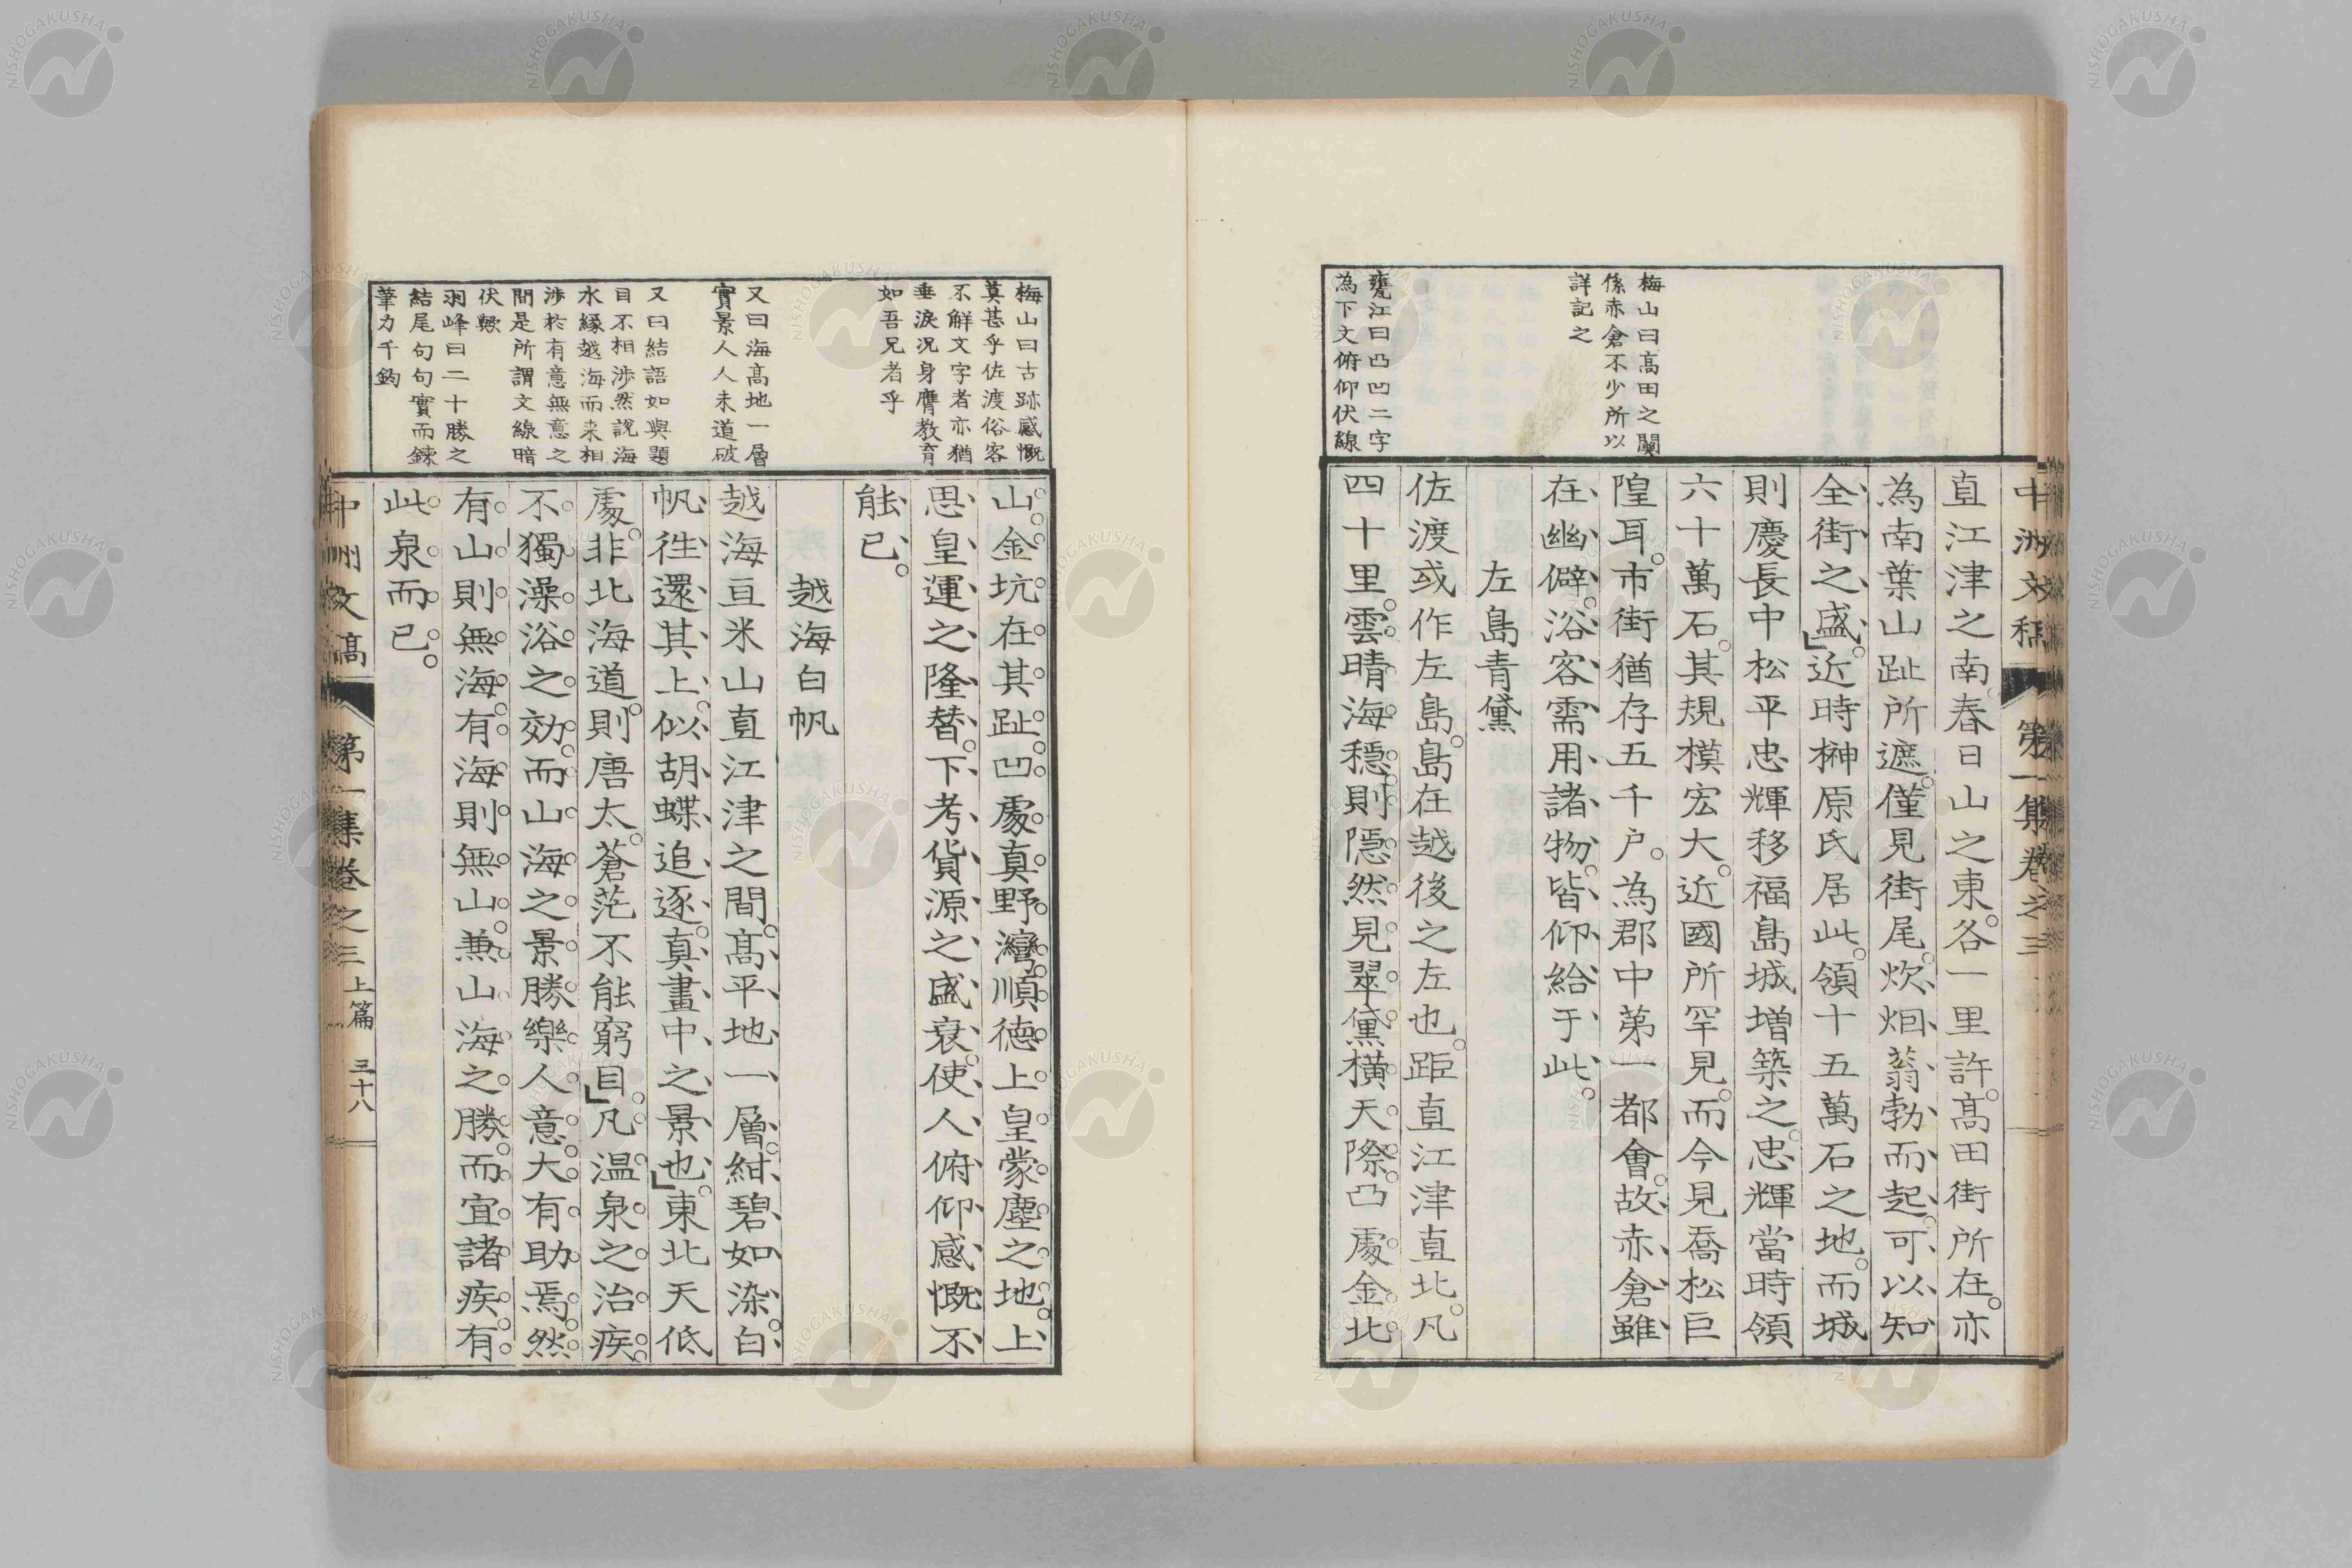 中洲文稿 第一集卷之三
梅山曰高田之闤
係赤倉不少所以
詳記之
甕江曰凸凹二字
為下文俯仰伏線
直江津之南。春日山之東。各一里許。高田街所在。亦
為南葉山趾所遮。僅見街尾。炊烟蓊勃而起。可以知
全街之盛。近時榊原氏居此。領十五萬石之地。而城
則慶長中松平忠輝移福島城増築之。忠輝當時領
六十萬石。其規模宏大。近國所罕見。而今見喬松巨
隍耳。市街猶存五千户。為郡中第一都會。故赤倉雖
在幽僻。浴客需用諸物。皆仰給于此。
左島青黛
佐渡或作左島。島在越後之左也。距直江津直北。凡
四十里。雲晴海穩。則隱然見翠黛橫天際。凸處金北
梅山曰古跡感慨
莫甚乎佐渡俗客
不解文字者亦猶
垂淚况身膺教育
如吾兄者乎
又曰海高地一層
實景人人未道破
又曰結語如與題
目不相渉然說海
水緣越海而来相
渉於有意無意之
間是所謂文線暗
伏歟
羽峰曰二十勝之
結尾句句實而鍊
筆力千鈞
山。金坑在其趾。凹處真野灣。順德上皇蒙塵之地。上
思皇運之隆替。下考貨源之盛衰。使人俯仰感慨不
能已。
越海白帆
越海亘米山直江津之間。高平地一層。紺碧如染。白
帆徃還其上。似胡蝶追逐。真畫中之景也。東北天低
處。非北海道。則唐太。蒼茫不能窮目。凡温泉之治疾
不獨澡浴之効。而山海之景勝。樂人意。大有助焉。然
有山則無海。有海則無山。兼山海之勝。而宜諸疾。有
此泉而已。
中洲文稿 第一集卷之三 上篇 三十八
NISHOGAKUSHA